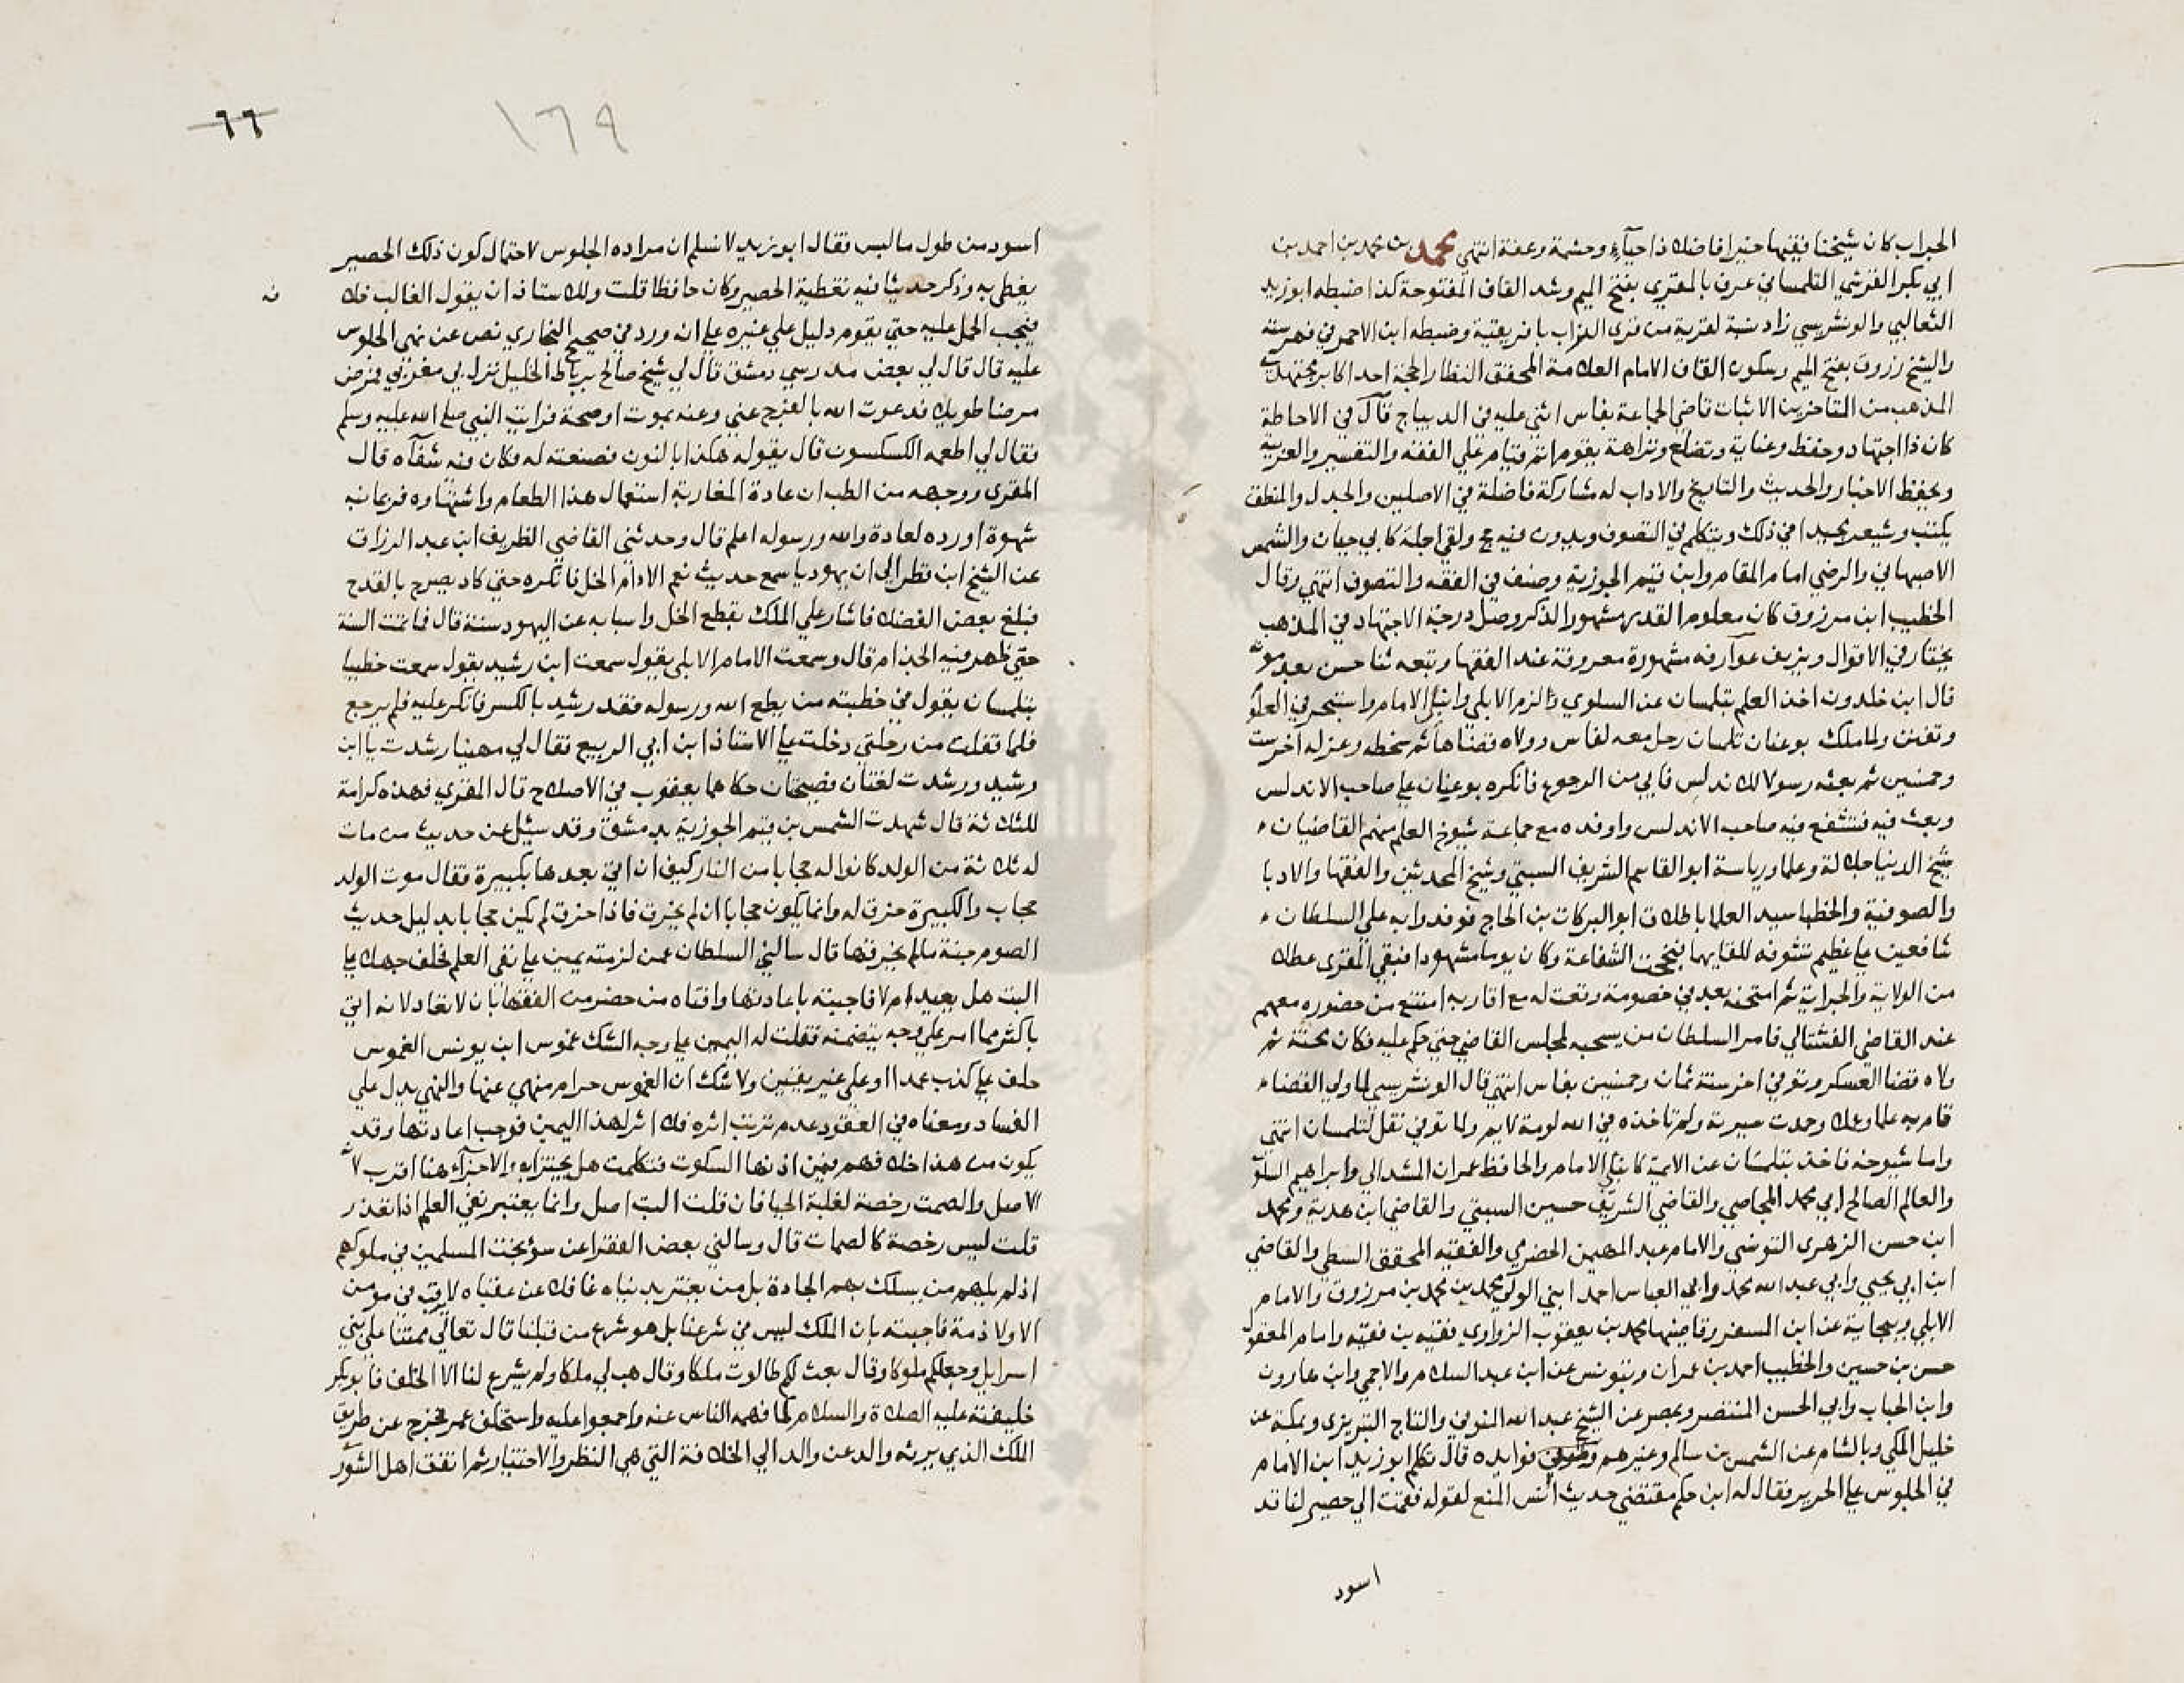 الجراب كان شيخنا فقيها خيرا فاضلا ذا حياء وحشمة وعفة انتهى محمد بن محمد بن احمد بن
ابي بكر القرشي التلمساني عرف بالمقري بفتح الميم وشد القاف المفتوحة كذا ضبطه ابو زيد
الثعالبي والونشريسي زاد نسبة لقرية من قرى الزاب بافريقية وضبطه ابن الاحمر في فهرسته
والشيخ زروق بفتح الميم وسكون القاف الامام العلامة المحقق النظار الحجة احد اكابر مجتهدي
المذهب من المتاخرين الاثبات قاضي الجماعة بفاس اثنى عليه في الديباج قال في الاحاطة
كان ذا اجتهاد وحفظ وعناية وتضلع ونزاهة يقوم اتم قيام على الفقه والتفسير والعربية
ويحفظ الاخبار والحديث والتاريخ والاداب له مشاركة فاضلة في الاصلين والجدل والمنطق
يكتب ويشعر مجيدا في ذلك ويتكلم في التصوف ويدون فيه حج ولقي اجلة كابي حيان والشمس
الاصبهاني والرضي امام المقام وابن قيم الجوزية وصنف في الفقه والتصوف انتهى وقال
الخطيب ابن مرزوق كان معلوم القدر مشهور الذكر وصل درجة الاجتهاد في المذهب
يختار في الاقوال ويزيف عوارفه مشهورة معروفة عند الفقها وتبعه ثنا حسن بعد موته
قال ابن خلدون اخذ العلم بتلمسان عن السلوي ولازم الابلي وابني الامام واستبحر في العلو
وتفنن ولما ملك بوعنان تلمسان رحل معه لفاس وولاه قضاها ثم سخطه وعزله اخر ست
وخمسين ثم بعثه رسولا للاندلس فابى من الرجوع فانكره بوعنان على صاحب الاندلس
وبعث فيه فتشفع فيه صاحب الاندلس واوفده مع جماعة شيوخ العلم منهم القاضيان
شيخ الدنيا جلالة وعلما ورياسة ابو القاسم الشريف السبتي وشيخ المحدثين والفقها والادبا
والصوفية والخطبا سيد العلما باطلاق ابو البركات بن الحاج فوفدوا به على السلطان
شافعين على عظيم تشوفه للقايهما فنجحت الشفاعة وكان يوما مشهودا فبقي المقري عطلا
من الولاية والجراية ثم امتحنه بعد في خصومة وقعت له مع اقاربه امتنع من حضوره معهم
عند القاضي الفشتالي فامر السلطان من يسحبه لمجلس القاضي حتى حكم عليه فكان محنته ثم
ولاه قضا العسكر وتوفي اخر سنة ثمان وخمسين بفاس انتهى قال الونشريسي لما ولي القضاء
قام به علما وعملا وحمدت سيرته ولم تاخذه في الله لومة لايم ولما توفي نقل لتلمسان انتهى
واما شيوخه فاخذ بتلمسان عن الايمة كابني الامام والحافظ عمران المشدالي وابراهيم السلو
والعالم الصالح ابي محمد المجاصي والقاضي الشريف حسين السبتي والقاضي ابن هدية ومحمد
ابن حسن الزهري التونسي والامام عبد المهيمن الحضرمي والفقيه المحقق السطي والقاضي
ابن ابي يحيى وابي عبد الله محمد وابي العباس احمد ابني الولي محمد بن محمد بن مرزوق والامام
الابلي وببجاية عن ابن المسفر وقاضيها محمد بن يعقوب الزواوي فقيه بن فقيه وامام المعقول
حسن بن حسين والخطيب احمد بن عمران وبتونس عن ابن عبد السلام والاجمي وابن هارون
وابن الحباب وابي الحسن المنتصر وبمصر عن الشيخ عبد الله المنوفي والتاج التبريزي وبمكة عن
خليل المكي وبالشام عن الشمس بن سالم وغيرهم فوايده قال تكلم ابو زيد ابن الامام
في الجلوس على الحرير فقال له ابن حكم مقتضى حديث انس المنع لقوله فقمت الى حصير لنا قد
اسود
٦٦
١٦٩
اسود من طول ما لبس فقال ابو زيد لا نسلم ان مراده الجلوس لاحتمال كون ذلك الحصير
يغطى به وذكر حديثا فيه تغطية الحصير وكان حافظا قلت وللاستاذ ان يقول الغالب فلا
فيجب الحمل عليه حتى يقوم دليل على غيره على انه ورد في صحيح البخاري نص عن نهي الجلوس
عليه قال قال لي بعض مدرسي دمشق قال لي شيخ صالح برباط الخليل نزل بي مغربي فمرض
مرضا طويلا فدعوت الله بالفرج عني وعنه بموت او صحة فرايت النبي صلى الله عليه وسلم
فقال لي اطعمه الكسكسون قال يقوله هكذا بالنون فصنعته له فكان فيه شفاه قال
المقري ووجهه من الطب ان عادة المغاربة استعمال هذا الطعام واشتهاوه فربما نبه
شهوة او رده لعادة والله ورسوله اعلم قال وحدثني القاضي الظريف ابن عبد الرزاق
عن الشيخ ابن قطرال ان يهوديا سمع حديث نعم الادام الخل فانكره حتى كاد يصرح بالقدح
فبلغ بعض الفضلا فاشار على الملك بقطع الخل واسبابه عن اليهود سنة قال فما تمت السنة
حتى ظهر فيه الجذام قال وسمعت الامام الابلي يقول سمعت ابن رشيد يقول سمعت خطيبا
بتلمسان يقول في خطبته من يطع الله ورسوله فقد رشد بالكسر فانكر عليه فلم يرجع
فلما قفلت من رحلتي دخلت على الاستاذ ابن ابي الربيع فقال لي مهنيا رشدت يا ابن
رشيد ورشدت لغتان فصيحتان حكاهما يعقوب في الاصلاح قال المقري فهذه كرامة
للثلاثة قال شهدت الشمس بن قيم الجوزية بدمشق وقد سئل عن حديث من مات
له ثلاثة من الولد كانوا له حجابا من النار كيف ان اتى بعدها بكبيرة فقال موت الولد
حجاب والكبيرة خرق له وانما يكون حجابا ان لم يخرق فاذا خرق لم يكن حجابا بدليل حديث
الصوم جنة ما لم يخرقها قال سالني السلطان عمن لزمته يمين على نفي العلم فحلف جهلا على
البت هل يعيد ام لا فاجبته باعادتها وافتاه من حضر من الفقها بان لا تعاد لانه اتى
باكثر مما امر على وجه يتضمنه فقلت له اليمين على وجه الشك غموس ابن يونس الغموس
حلف على كذب عمدا او على غير يقين ولا شك ان الغموس حرام منهي عنها والنهي يدل على
الفساد ومعناه في العقود عدم ترتب اثره فلا اثر لهذا اليمين فوجب اعادتها وقد
يكون من هذا خلافهم فيمن اذنها السكوت فتكلمت هل يجتزا به والاجزاء هنا اقرب لانه
الاصل والصمت رخصة لغلبة الحيا فان قلت البت اصل وانما يعتبر نفي العلم اذا تعذر
قلت ليس رخصة كالصمات قال وسالني بعض الفقرا عن سو بخت المسلمين في ملوكهم
اذ لم يلهم من يسلك بهم الجادة بل من يغتر بدنياه غافلا عن عقباه لا يرقب في مومن
الا ولا ذمة فاجبته بان الملك ليس في شرعنا بل هو شرع من قبلنا قال تعالى ممتنا على بني
اسرايل وجعلكم ملوكا وقال بعث لكم طالوت ملكا وقال هب لي ملكا ولم يشرع لنا الا الخلف فابوبكر
خليفته عليه الصلاة والسلام كما فهمه الناس عنه واجمعوا عليه واستخلف عمر فخرج عن طريق
الملك الذي يرثه والد عن والد الى الخلافة التي هي النظر والاختيار ثم اتفق اهل الشور